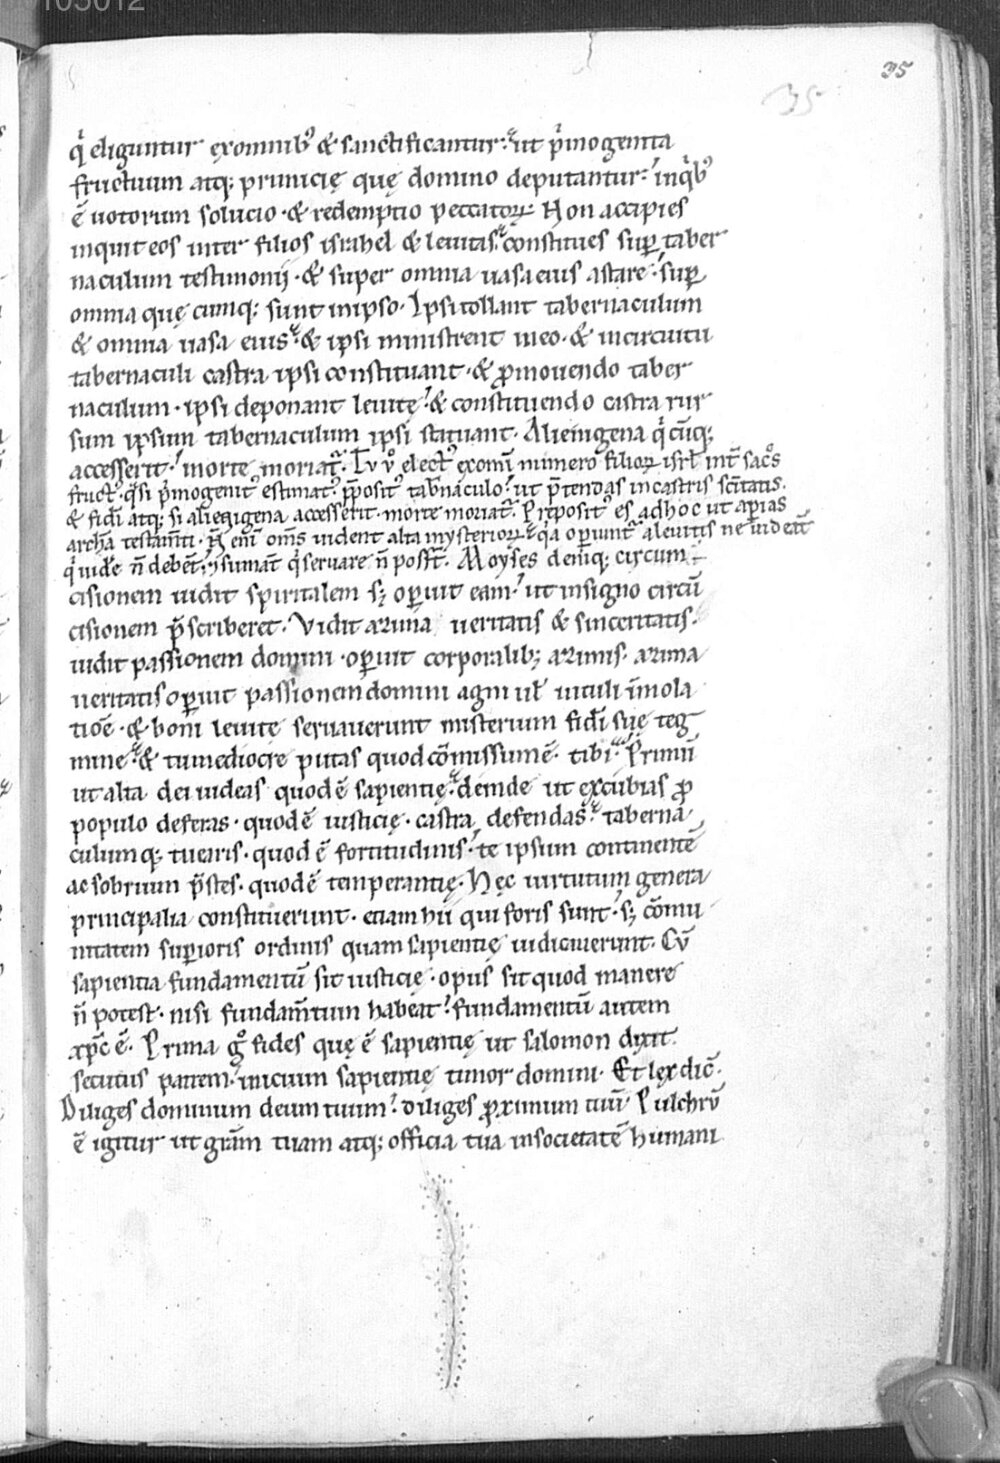 105012
35
35
qͥ eliguntur exomnib᷒ & sanctificantur. ut pͥmogenita
fructuum atq; primicię quę domino deputantur. inqͥb᷒
ē uotorum solucio · & redemptio peccatoꝝ Non accipies
inquit eos inter filios israhel & leuitis. constitues suꝑ taber
naculum testimonij · & super omnia uasa eius astare. suꝑ
omnia quę cumq; sunt inipso · Ipsi tollant tabernaculum
& omnia uasa eius. & ipsi ministrent ineo · & incircuitu
tabernaculi castra ipsi constituant · & ꝓmouendo taber
naculum · ipsi deponant leuitę. & constituendo castra rur
sum ipsum tabernaculum ipsi statuant · Alienigena qͥ cūq;
accesserit. morte moriat᷑ · Tu u͛o elect᷒ exomī numero filioꝝ isrł int̄ sac͛os
fruct᷒ · qͣsi pͥmogenit᷒ estimat᷒ p̄posit᷒ tab̄naculo. ut p̄tendas incastris sc̄itatis.
& fidī atq; si alienigena accesserit · morte moriat᷑. Preposit᷒ es adhoc ut aperias
archā testam̄ti · N̄ enī om̄s uident alta mysterioꝝ qͥa oꝑiunt᷑ aleuitis ne uideāt
qͥ uidē n̄ debēt. & sumāt qͥ seruare n̄ poss̄t. Moyses deniq; circum
cisionem uidit spiritalem sꝫ oꝑuit eam. ut insigno circū
cisionem p̄scriberet. Vidit azima ueritatis & sinceritatis.
uidit passionem domini · oꝑuit corporalib; azimis · azima
ueritatis oꝑuit passionem domini agni uł uituli īmola
tiōe · & boni leuitę seruauerunt misterium fidī suę teg
mine. & tu mediocre putas quod cōmissum ē tibi. Primū
ut alta dei uideas quod ē sapientię. deinde ut excubias ꝓ
populo deferas · quod ē iusticię · castra defendas. taberna
culumq; tuearis · quod ē fortitudinis. te ipsum continentē
ac sobrium p̄stes · quod ē temperantię. Hęc uirtutum genera
principalia constituerunt · etiam hii qui foris sunt · sꝫ cōmu
nitatem suꝑioris ordinis quam sapientię iudicauerunt. Cū
sapientia fundamentū sit iusticię · opus sit quod manere
n̄ potest · nisi fundam̄tum habeat. fundamentū autem
xp̄c ē. Prima gͦ fides quę ē sapientię ut salomon dixit.
secutus patrem. inicium sapientię timor domini · Et lex dic̄.
Diliges dominum deum tuum. diliges ꝓximum tuū Pulchrū
ē igitur ut grām tuam atq; officia tua insocietatē humani